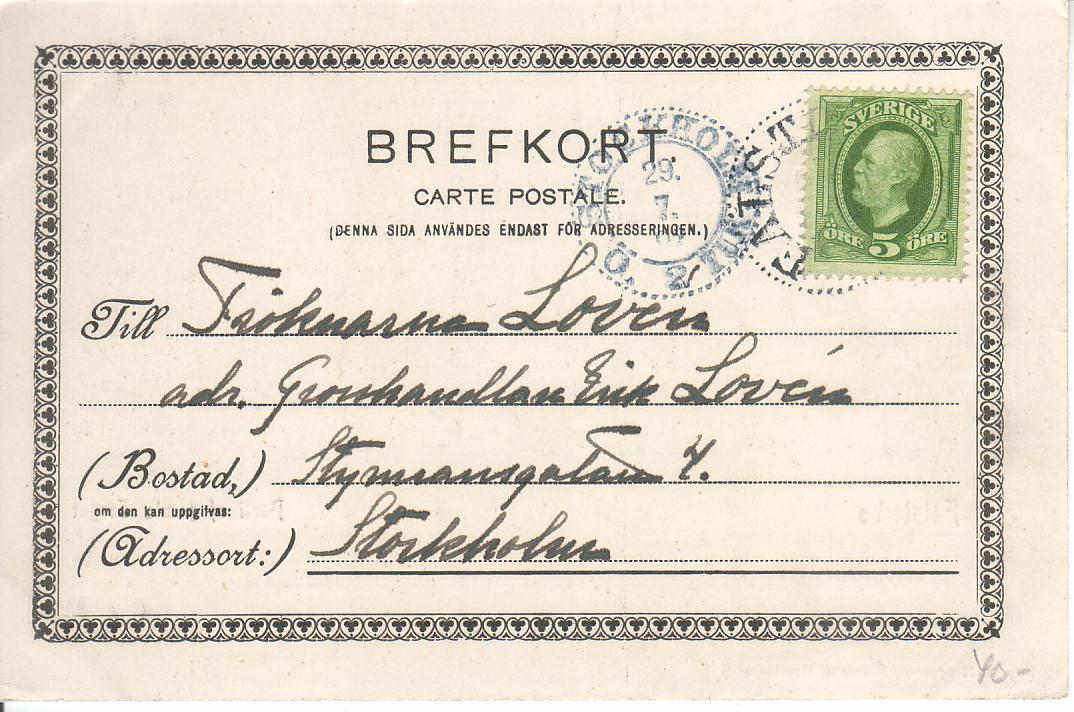 BREFKORT.
CARTE POSTALE.
(DENNA SIDA ANVÄNDES ENDAST FÖR ADRESSERINGEN.)
STOCKHOLM
29.
7.
Ö. 2
SVERIGE
ÖRE 5 ÖRE
Till Fröknarna Lovén
adr. Grosshandlaren Erik Lovén
(Bostad,) Styrmansgatan 4.
om den kan uppgifvas:
(Adressort:) Stockholm
40-